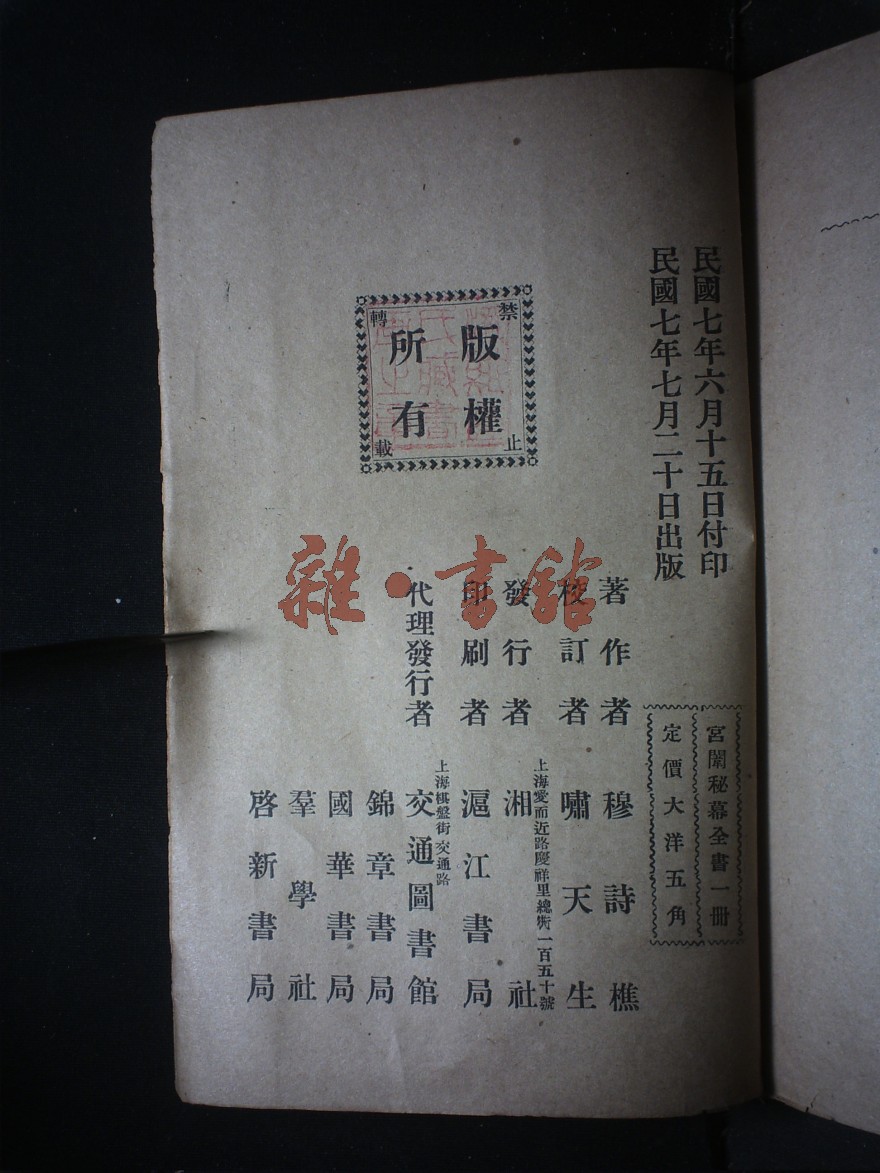 民國七年六月十五日付印
民國七年七月二十日出版
宮闈秘幕全書一冊
定價大洋五角
版權所有
禁止轉載
著作者 穆詩樵
校訂者 嘯天生
上海愛而近路慶祥里總衖一百五十號
發行者 湘社
印刷者 滬江書局
上海棋盤街交通路
代理發行者 交通圖書館
錦章書局
國華書局
羣學社
啓新書局
雜·書館